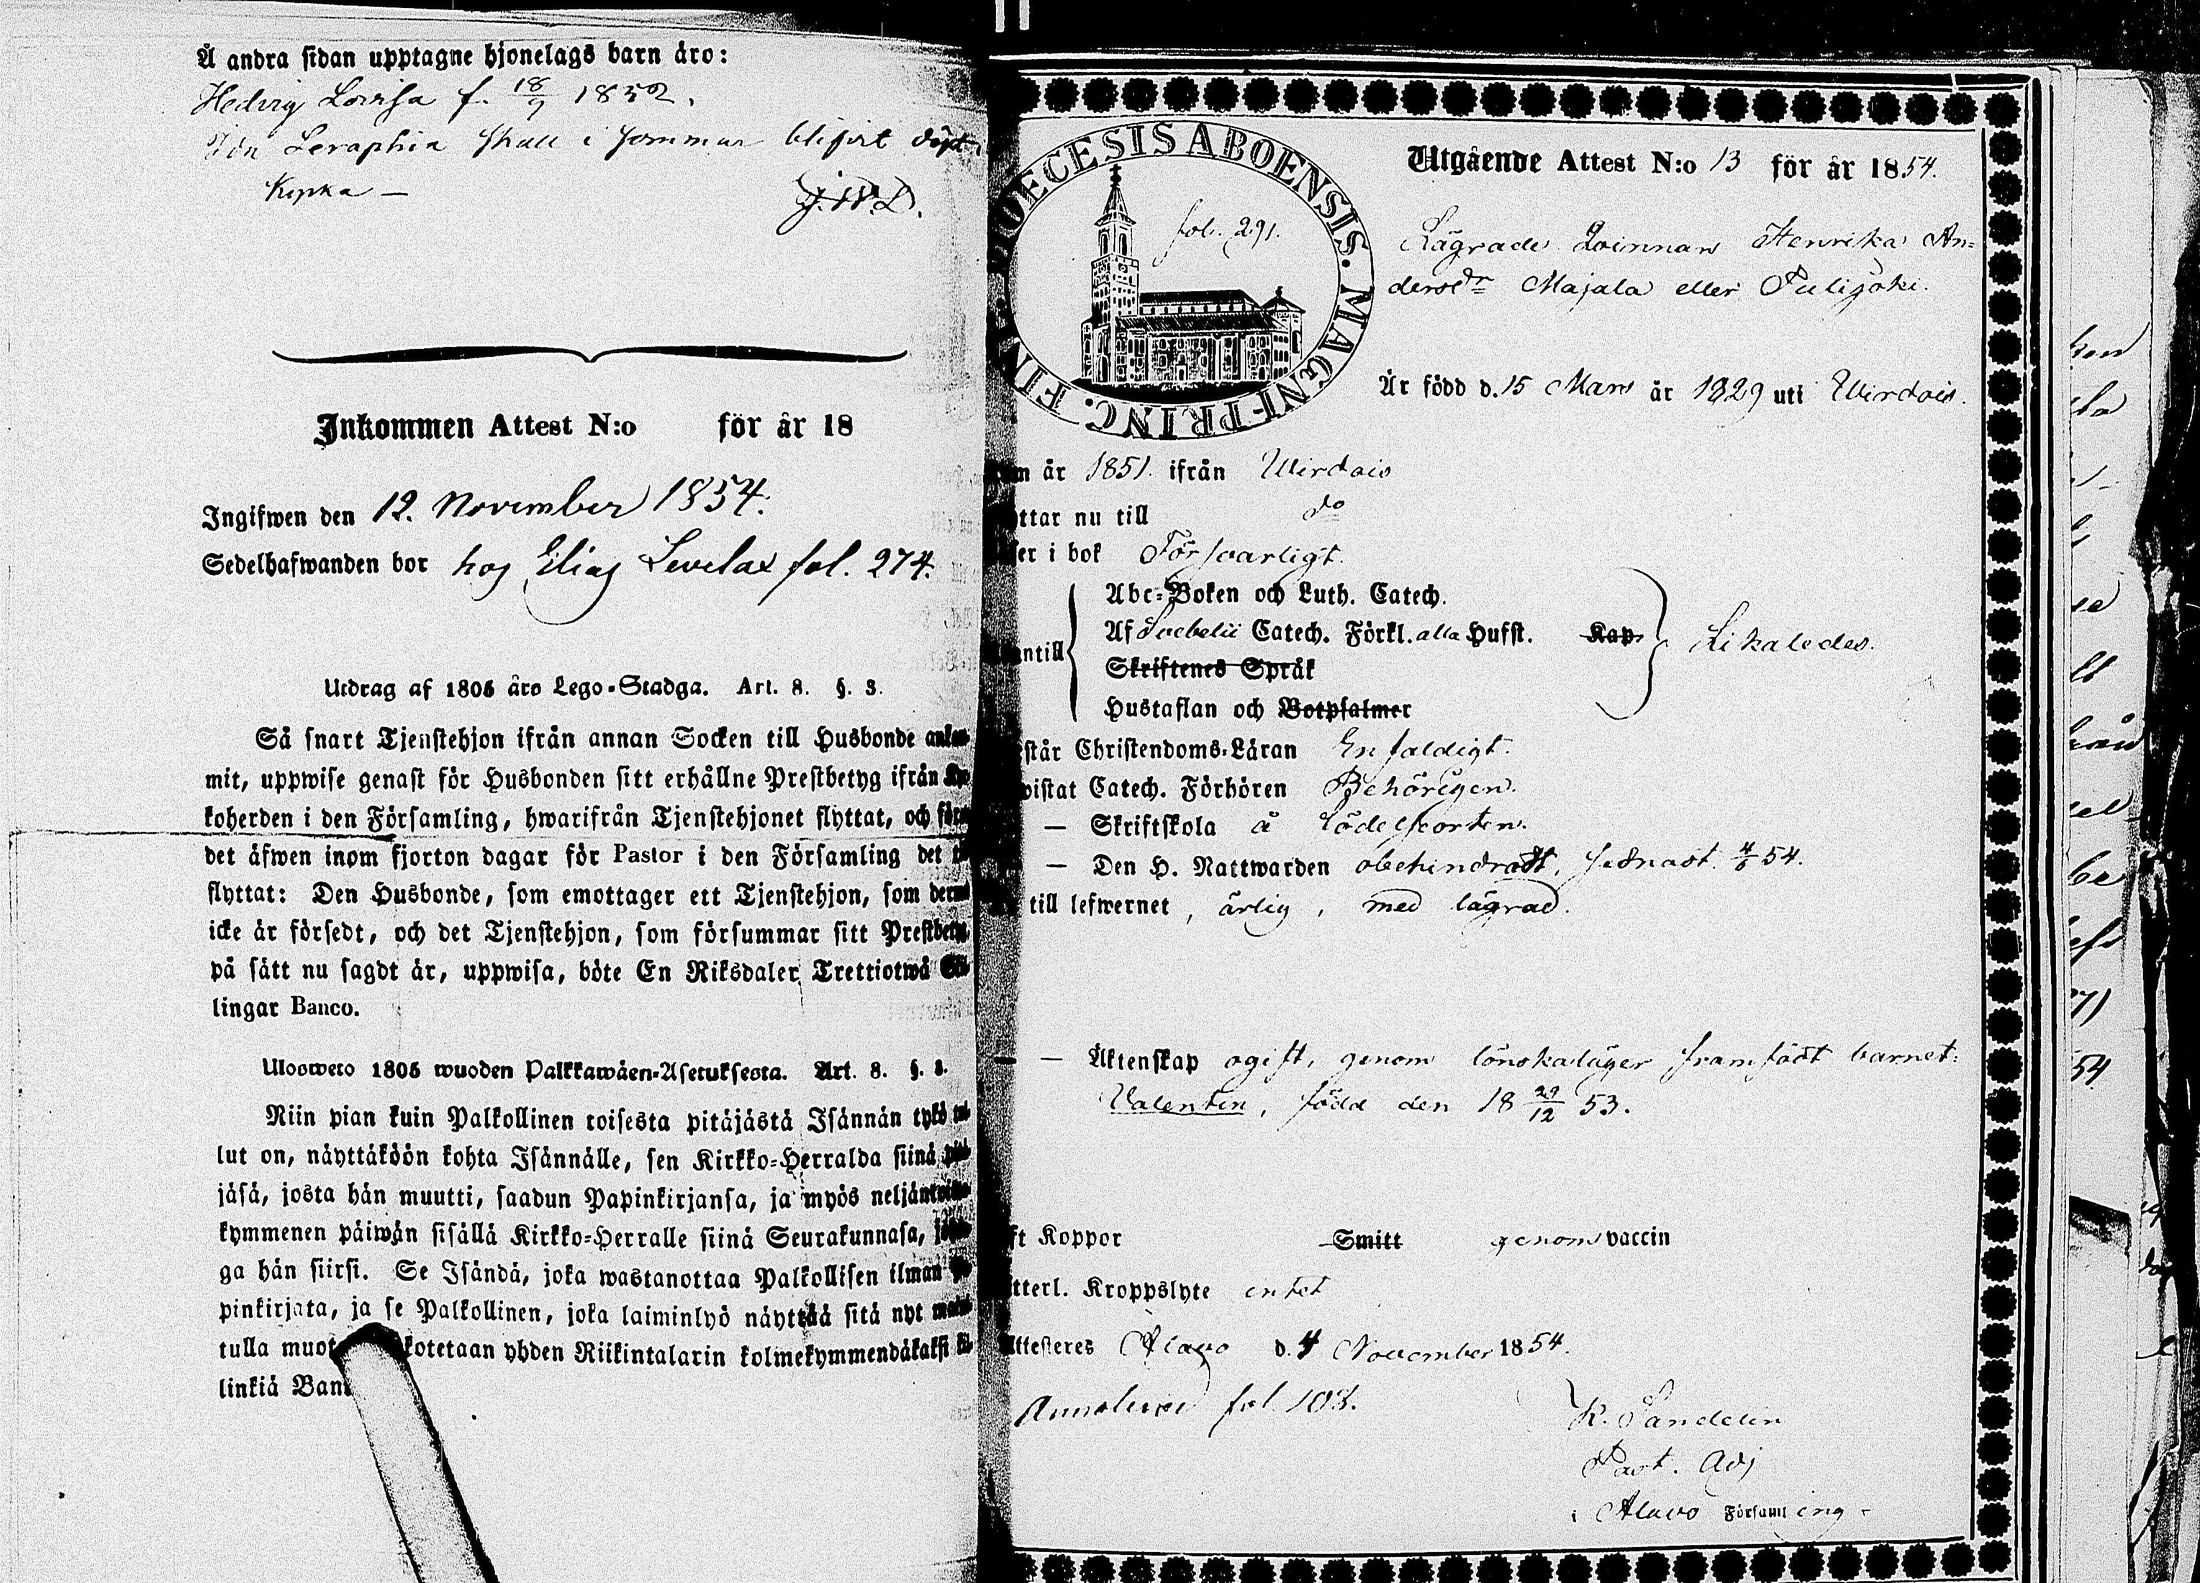 Å andra sidan upptagne hjonelags barn äro:
Hedvig Lovisa f. 18/9 1852.
Seraphia skall i sommar blifvit
J.W.L.
Inkommen Attest N:o för år 18
Ingifwen den 12. November 1854.
Sedelhafwanden bor hos Elias Levelax fol. 274.
Utdrag af 1805 års Lego-Stadga. Art. 8. §. 3.
Så snart Tjenstehjon ifrån annan Socken till Husbonde
mit, uppwise genast för Husbonden sitt erhållne Prestbetyg ifrån
koherden i den Församling, hwarifrån Tjenstehjonet flyttat, och
det äfwen inom fjorton dagar för Pastor i den Församling det
flyttat: Den Husbonde, som emottager ett Tjenstehjon, som
icke är försedt, och det Tjenstehjon, som försummar sitt Prestbetyg,
på sätt nu sagdt är, uppwisa, böte En Riksdaler Trettiotwå
lingar Banco.
Ulosweto 1805 wuoden Palkkawäen-Asetuksesta. Art. 8. §. 3.
Niin pian kuin Palkollinen toisesta pitäjästä Isännän tykö
lut on, näyttäköön kohta Isännälle, sen Kirkko-Herralda siinä
jäsä, josta hän muutti, saadun Papinkirjansa, ja myös
kymmenen päiwän sisällä Kirkko-Herralle siinä Seurakunnasa,
ga hän siirsi. Se Isändä, joka wastanottaa Palkollisen ilman
pinkirjata, ja se Palkollinen, joka laiminlyö näyttää sitä nyt
tulla kotetaan yhden Riikintalarin kolmekymmendäkaksi
linkiä
DIOECESIS ABOENSIS. MAGNI PRINC. FIN
fol. 291.
Utgående Attest N:o 13 för år 1854.
Lägrade Qvinnan Henrika An-
dersdr Majala eller Pulijoki.
Är född d. 15 Mars år 1829 uti Wirdois.
år 1851. ifrån Wirdois
ttar nu till do
er i bok Försvarligt.
Abc-Boken och Luth. Catech.
Af Svebelii Catech. Förkl. alla Hufst. Kap.
Skriftenes Språk
Hustaflan och Botpsalmer
Likaledes.
står Christendoms-Läran Enfaldigt.
wistat Catech. Förhören Behörigen.
— Skriftskola
— Den H. Nattwarden obehindradt, sednast 4/6 54.
till lefwernet, ärlig, med lägrad.
— Äktenskap ogift, genom lönskaläger framfödt barnet:
Valentin, född den 18 29/12 53.
ft Koppor Smitt genom vaccin
tterl. Kroppslyte intet
Attesteres Alavo d. 4 November 1854.
fol 103.
K. Sandelin
Past. Adj
i Alavo Församling